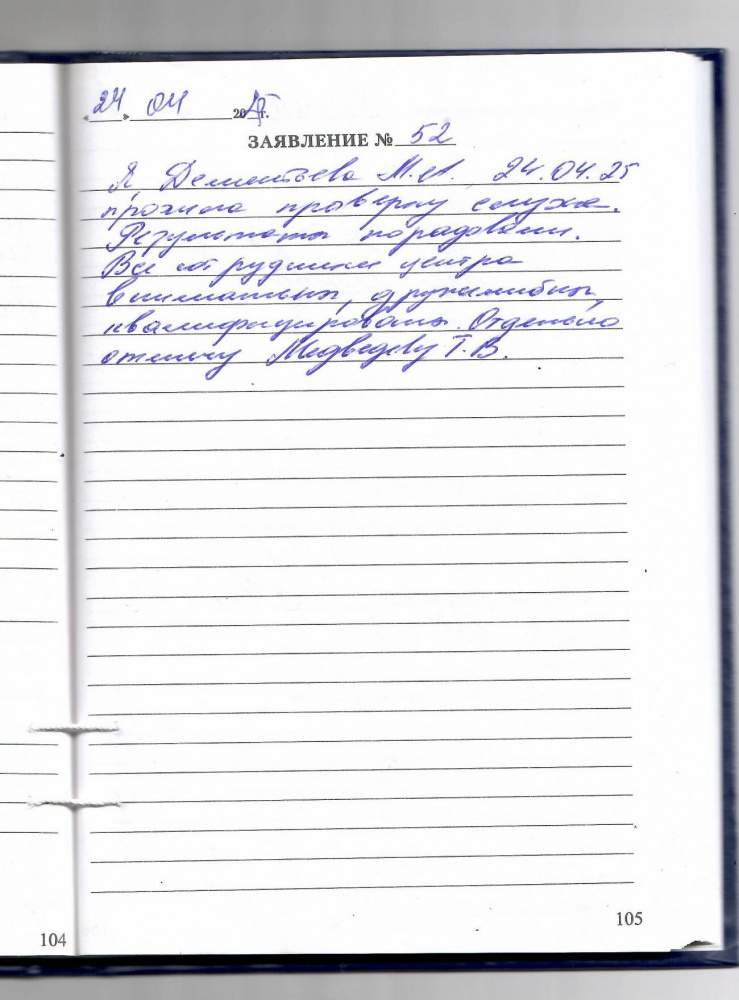 «24» 04 2025 г.
ЗАЯВЛЕНИЕ № 52
Я, Дементьева М.А. 24.04.25
прошла проверку слуха.
Результаты порадовали.
Все сотрудники центра
внимательны, дружелюбны,
квалифицированы. Отдельно
отмечу Медведеву Т.В.
104
105